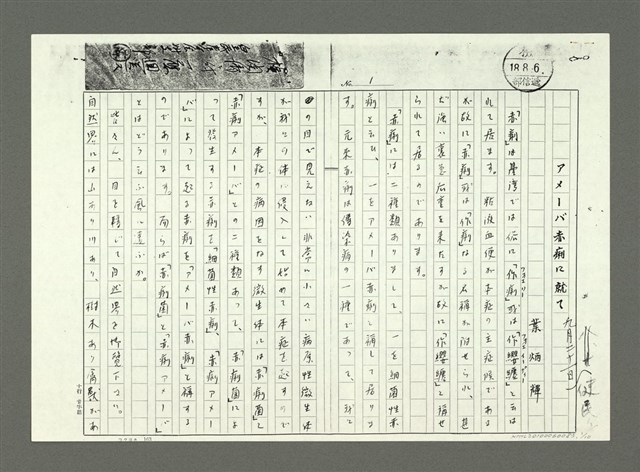 アメーバ赤痢に就て
葉 炳 輝
九月二十一日
健民
18.8.6.
№ 1
「赤痢」は台湾では俗に「作痢」或は「作纓纏」と云は
れて居ます。粘液血便が本症の主症候である
が故に「赤痢」或は「作痢」なる名称が附せられ、甚
だ強い裏急后重を来たすが故に「作纓纏」と称せ
られて居るのであります。
「赤痢」には二種類ありまして、一を細菌性赤
痢と云ひ、一をアメーバ赤痢と稱して居りま
す。元来赤痢は傳染病の一種であって、我々
の目で見えない非常に小さい病原性微生体
が我々の体に侵入して始めて本症を起すので
すが、本症の病因をなす微生体には「赤痢菌」と
「赤痢アメーバ」との二種類あって、「赤痢菌」によ
って發生する赤痢を「細菌性赤痢」、「赤痢アメー
バ」によって起る赤痢を「アメーバ赤痢」と稱する
のであります。而らば「赤痢菌」と「赤痢アメーバ」
とはどう云ふ風に違ふか。
皆さん、目を轉じて自然界を御覧下さい。
自然界には山あり川あり、樹木あり